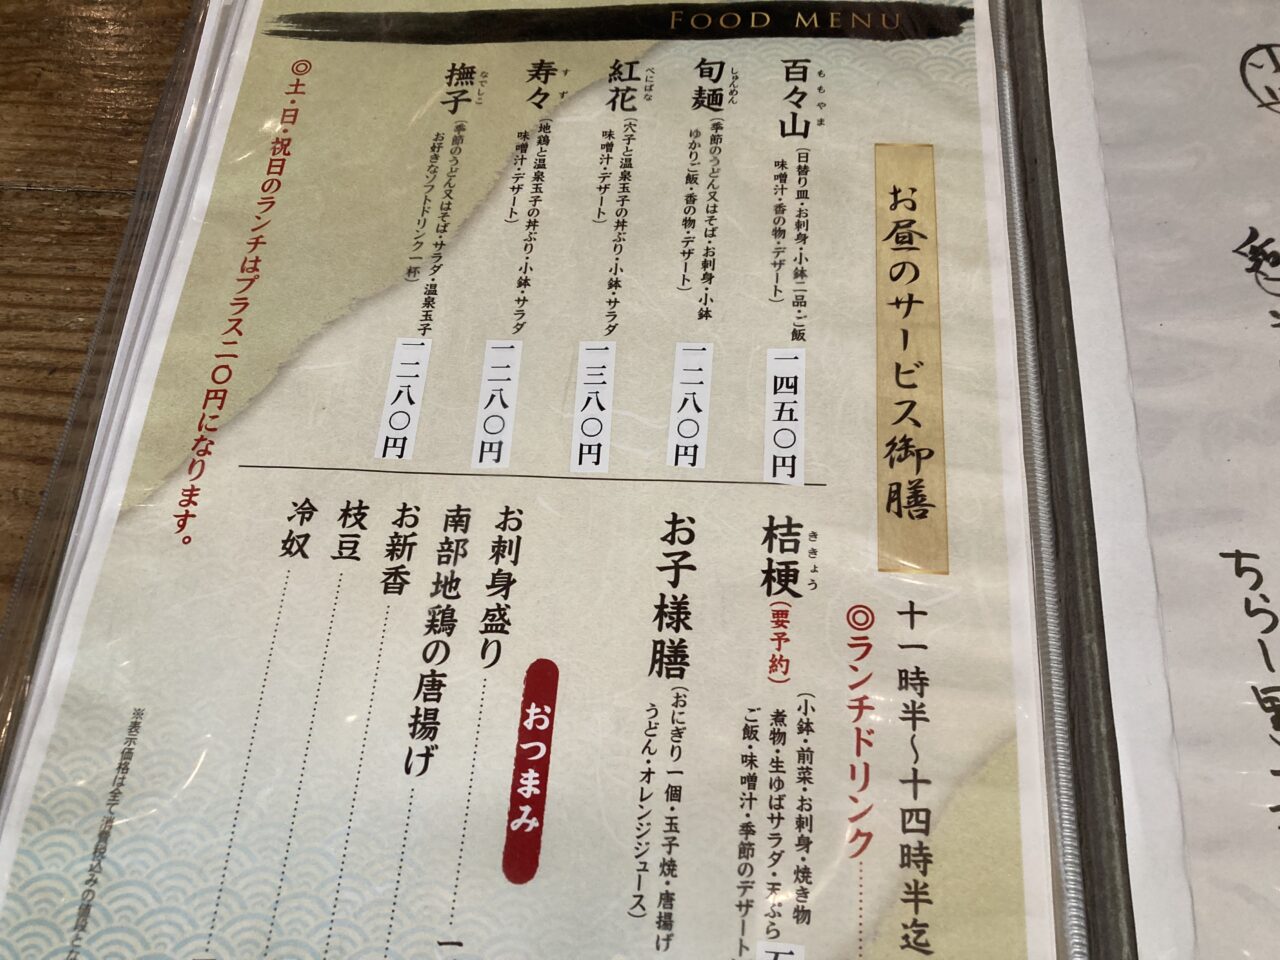 FOOD MENU
お昼のサービス御膳
十一時半〜十四時半迄
◎ランチドリンク
百々山
ももやま
(日替り皿・お刺身・小鉢二品・ご飯
味噌汁・香の物・デザート)
一四五〇円
旬麺
しゅんめん
(季節のうどん又はそば・お刺身・小鉢
ゆかりご飯・香の物・デザート)
一二八〇円
紅花
べにばな
(穴子と温泉玉子の丼ぶり・小鉢・サラダ
味噌汁・デザート)
一三八〇円
寿々
すず
(地鶏と温泉玉子の丼ぶり・小鉢・サラダ
味噌汁・デザート)
一二八〇円
撫子
なでしこ
(季節のうどん又はそば・サラダ・温泉玉子
お好きなソフトドリンク一杯)
一二八〇円
◎土・日・祝日のランチはプラス二〇円になります。
桔梗
ききょう
(要予約)
(小鉢・前菜・お刺身・焼き物
煮物・生ゆばサラダ・天ぷら
ご飯・味噌汁・季節のデザート
お子様膳
(おにぎり一個・玉子焼・唐揚げ
うどん・オレンジジュース)
おつまみ
お刺身盛り
南部地鶏の唐揚げ
お新香
枝豆
冷奴
※表示価格は全て消費税込みの値段とな
ちらし